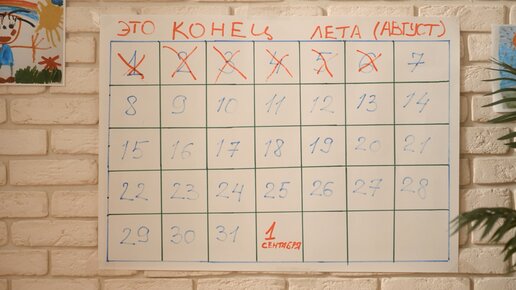 ЭТО КОНЕЦ ЛЕТА (АВГУСТ)
1 2 3 4 5 6 7
8 9 10 11 12 13 14
15 16 17 18 19 20 21
22 23 24 25 26 27 28
29 30 31 1
СЕНТЯБРЯ